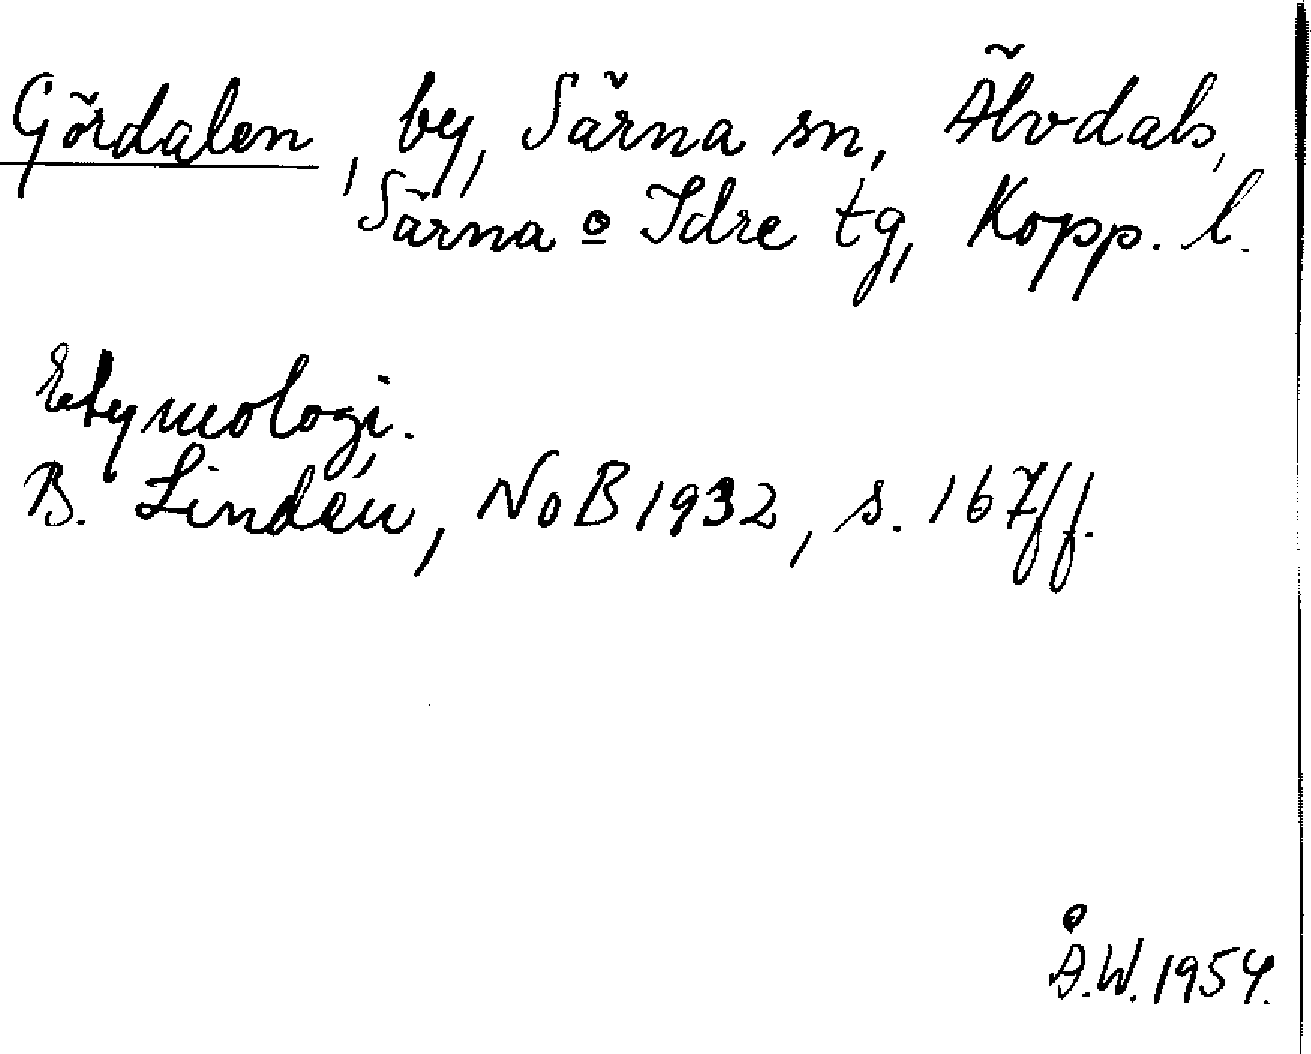 Gördalen, by, Särna sn, Älvdals,
Särna o Idre tg, Kopp. l.
Etymologi.
B. Lindén, NoB 1932, s. 167 ff.
Å.W. 1954.